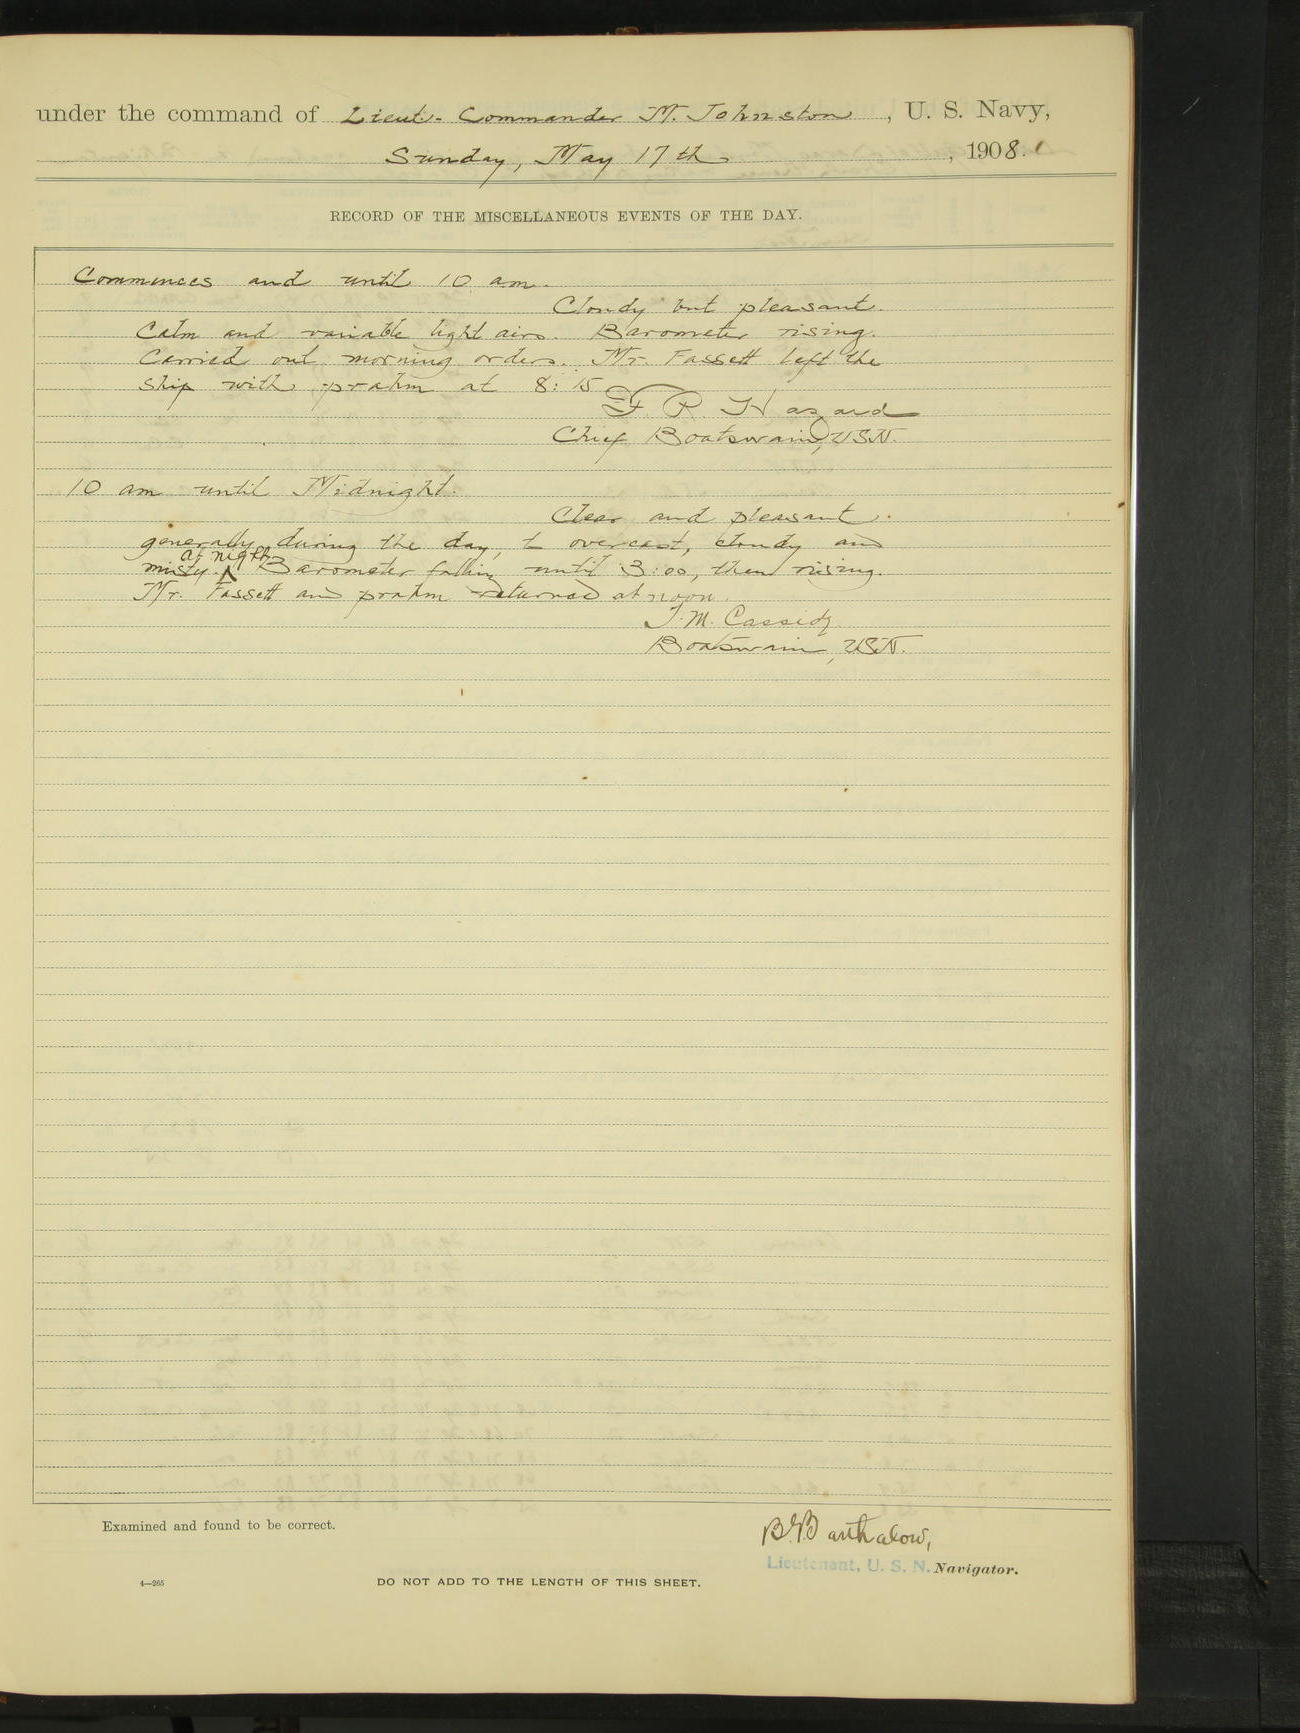 under the command of Lieut.-Commander M. Johnston, U. S. Navy,
Sunday, May 17th, 1908.
RECORD OF THE MISCELLANEOUS EVENTS OF THE DAY.
Commences and until 10 am.
Cloudy but pleasant.
Calm and variable light airs. Barometer rising.
Carried out morning orders. Mr. Fassett left the
ship with prahm at 8:15
F. R. Hazard
Chief Boatswain, USN.
10 am until Midnight.
Clear and pleasant
generally during the day, to overcast, cloudy and
misty at night. Barometer falling until 3:00, then rising.
Mr. Fassett and prahm returned at noon.
J. M. Cassidy
Boatswain, USN.
Examined and found to be correct.
B. B. Barthalow,
Lieutenant, U. S. N. Navigator.
4—265
DO NOT ADD TO THE LENGTH OF THIS SHEET.